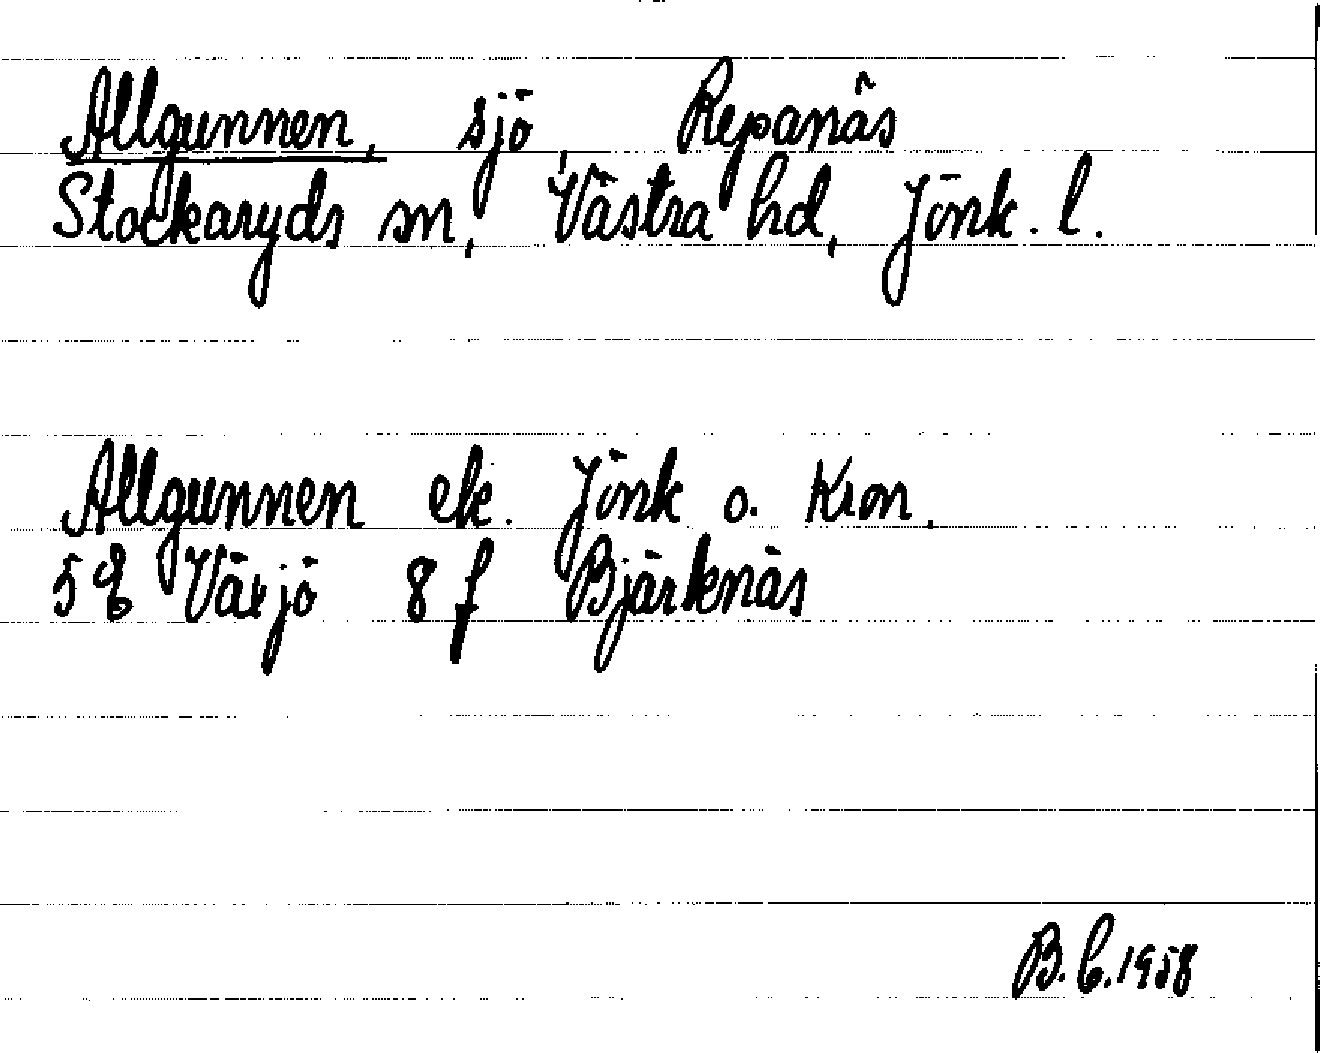 Allgunnen, sjö, Repanäs
Stockaryds sn, Västra hd, Jönk. l.
Allgunnen ek. Jönk o. Kron.
5 E Växjö 8 f Bjärknäs
B. C. 1958